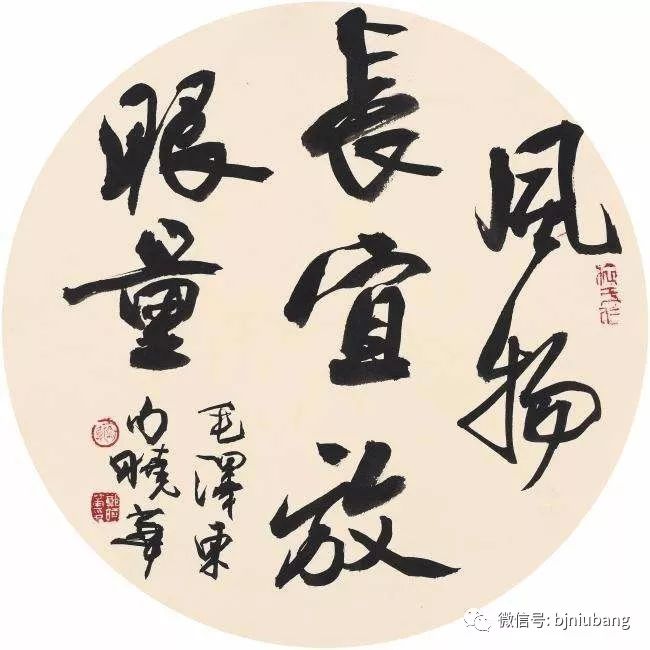 風物
長宜放
眼量
毛澤東
句曉華
微信号: bjniubang